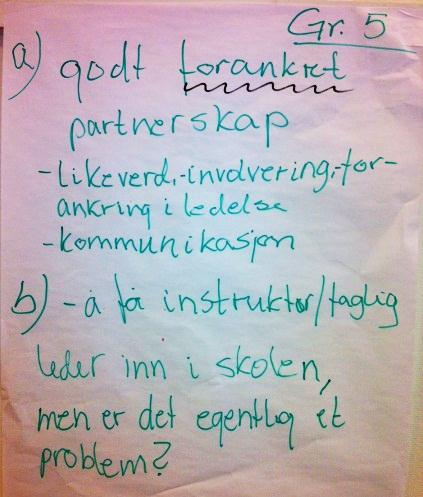 Gr. 5
a) godt forankret
partnerskap
- Likeverd, -involvering, -for-
ankring i ledelse
- kommunikasjon
b) - å få instruktør/faglig
leder inn i skolen,
men er det egentlig et
problem?